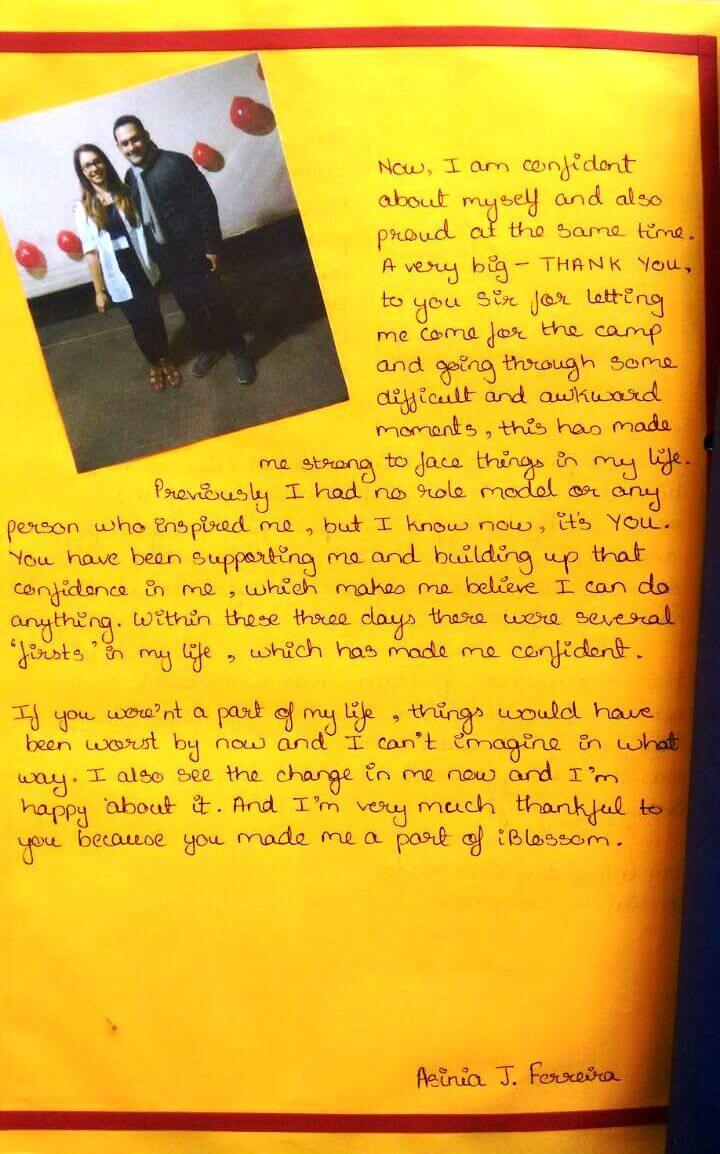 Now, I am confident
about myself and also
proud at the same time.
A very big - THANK YOU,
to you Sir for letting
me come for the camp
and going through some
difficult and awkward
moments, this has made
me strong to face things in my life.
Previously I had no role model or any
person who inspired me, but I know now, it's YOU.
You have been supporting me and building up that
confidence in me, which makes me believe I can do
anything. Within these three days there were several
'firsts' in my life, which has made me confident.
If you were'nt a part of my life, things would have
been worst by now and I can't imagine in what
way. I also see the change in me now and I'm
happy about it. And I'm very much thankful to
you because you made me a part of iBlossom.
Asinia J. Ferreira